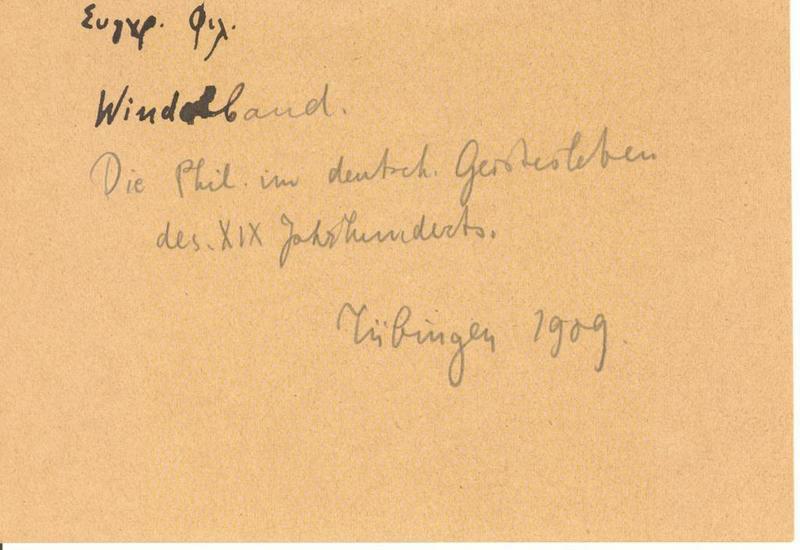 Συγχρ. Φιλ.
Windelband.
Die Phil. im deutsch. Geistesleben
des XIX Jahrhunderts.
Tübingen 1909.